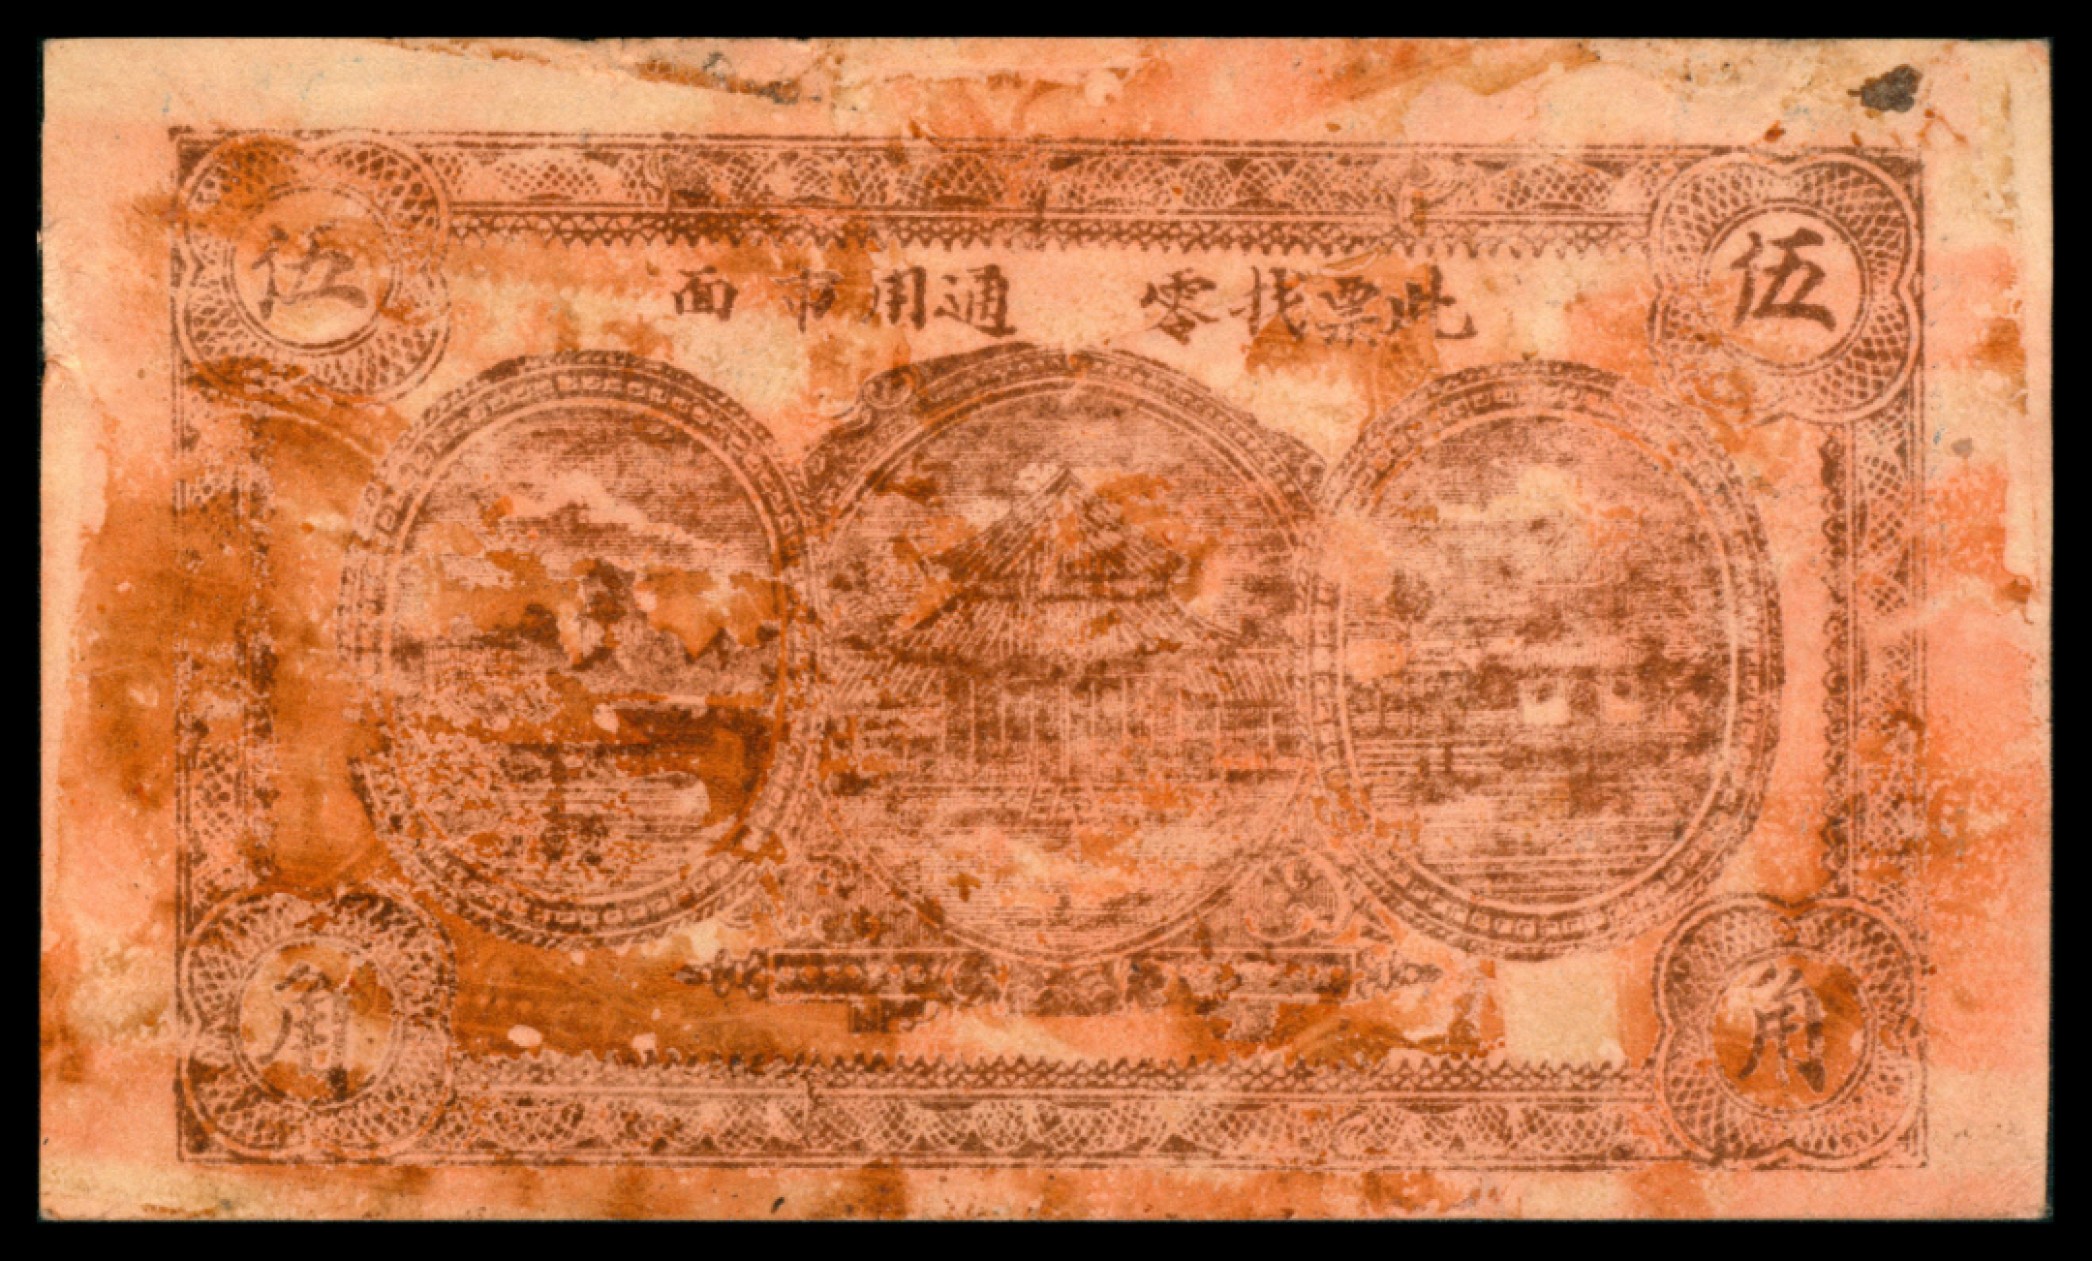 伍 伍
此票找零 通用市面
角 角